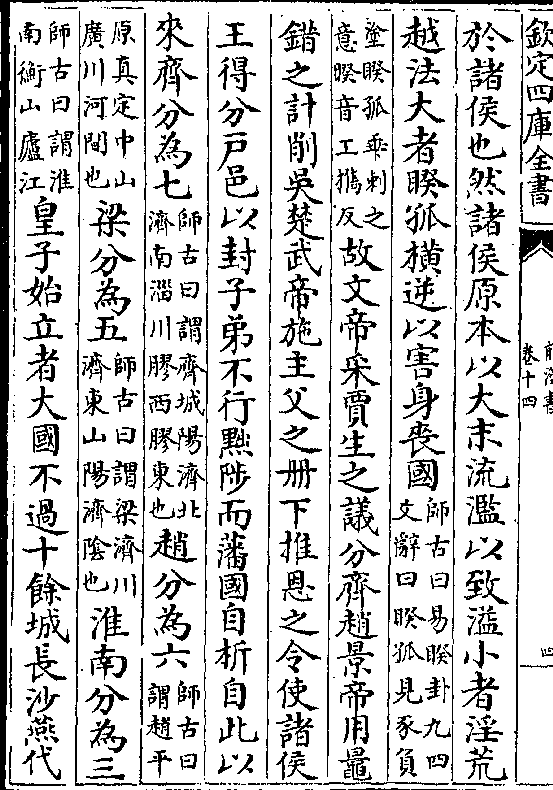 欽定四庫全書
卷十四
四
於諸侯也然諸侯原本以大末流濫以致溢小者淫荒
越法大者睽孤橫逆以害身喪國師古曰易睽卦九四文辭曰睽孤見豕負
塗睽孤乖剌之意睽音工攜反故文帝采賈生之議分齊趙景帝用鼂
錯之計削吳楚武帝施主父之冊下推恩之令使諸侯
王得分戶邑以封子弟不行黜陟而藩國自析自此以
來齊分為七師古曰謂齊城陽濟北濟南淄川膠西膠東也趙分為六師古曰謂趙平
原真定中山廣川河間也梁分為五師古曰謂梁濟川濟東山陽濟陰也淮南分為三
師古曰謂淮南衡山廬江皇子始立者大國不過十餘城長沙燕代